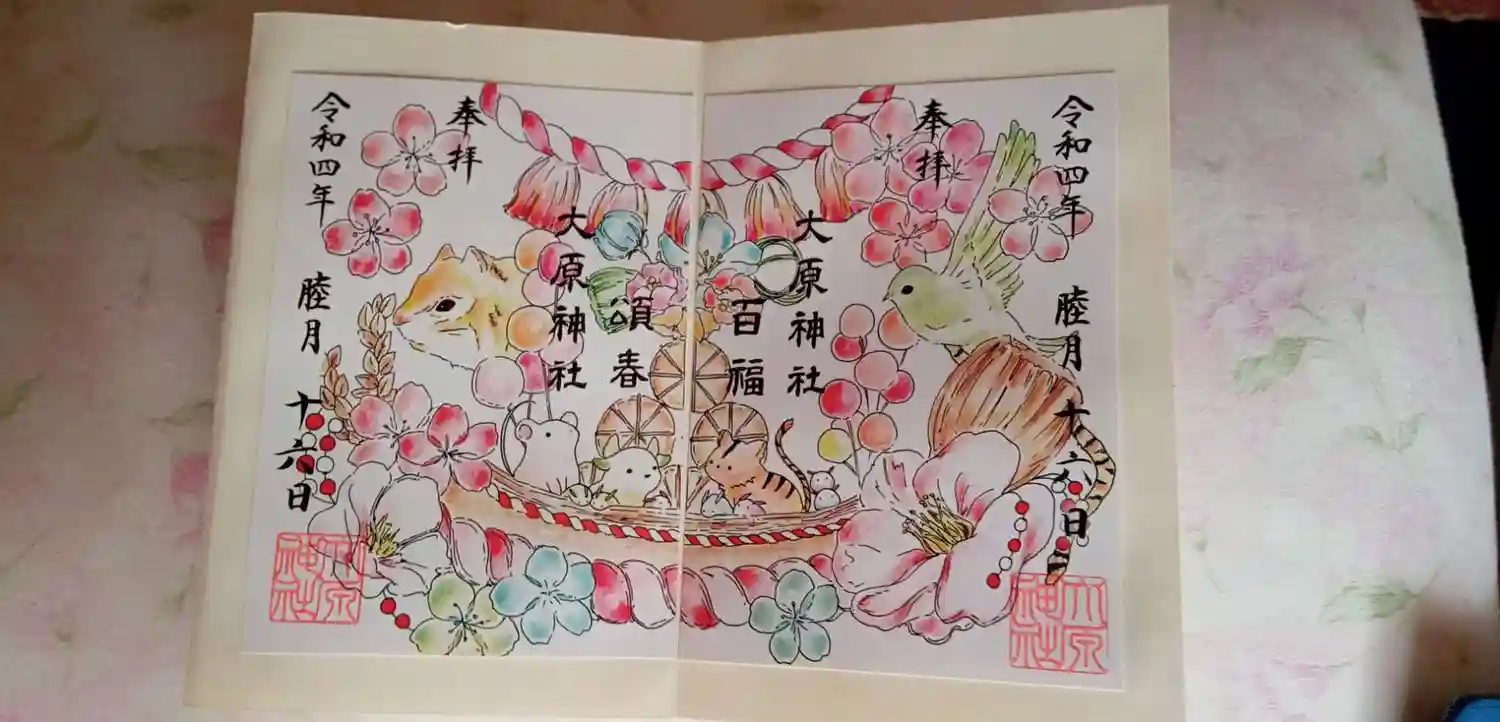 奉拝
令和四年 睦月 十六日
大原神社
百福
頌春
大原神社
奉拝
令和四年 睦月 十六日
大原神社
大原神社